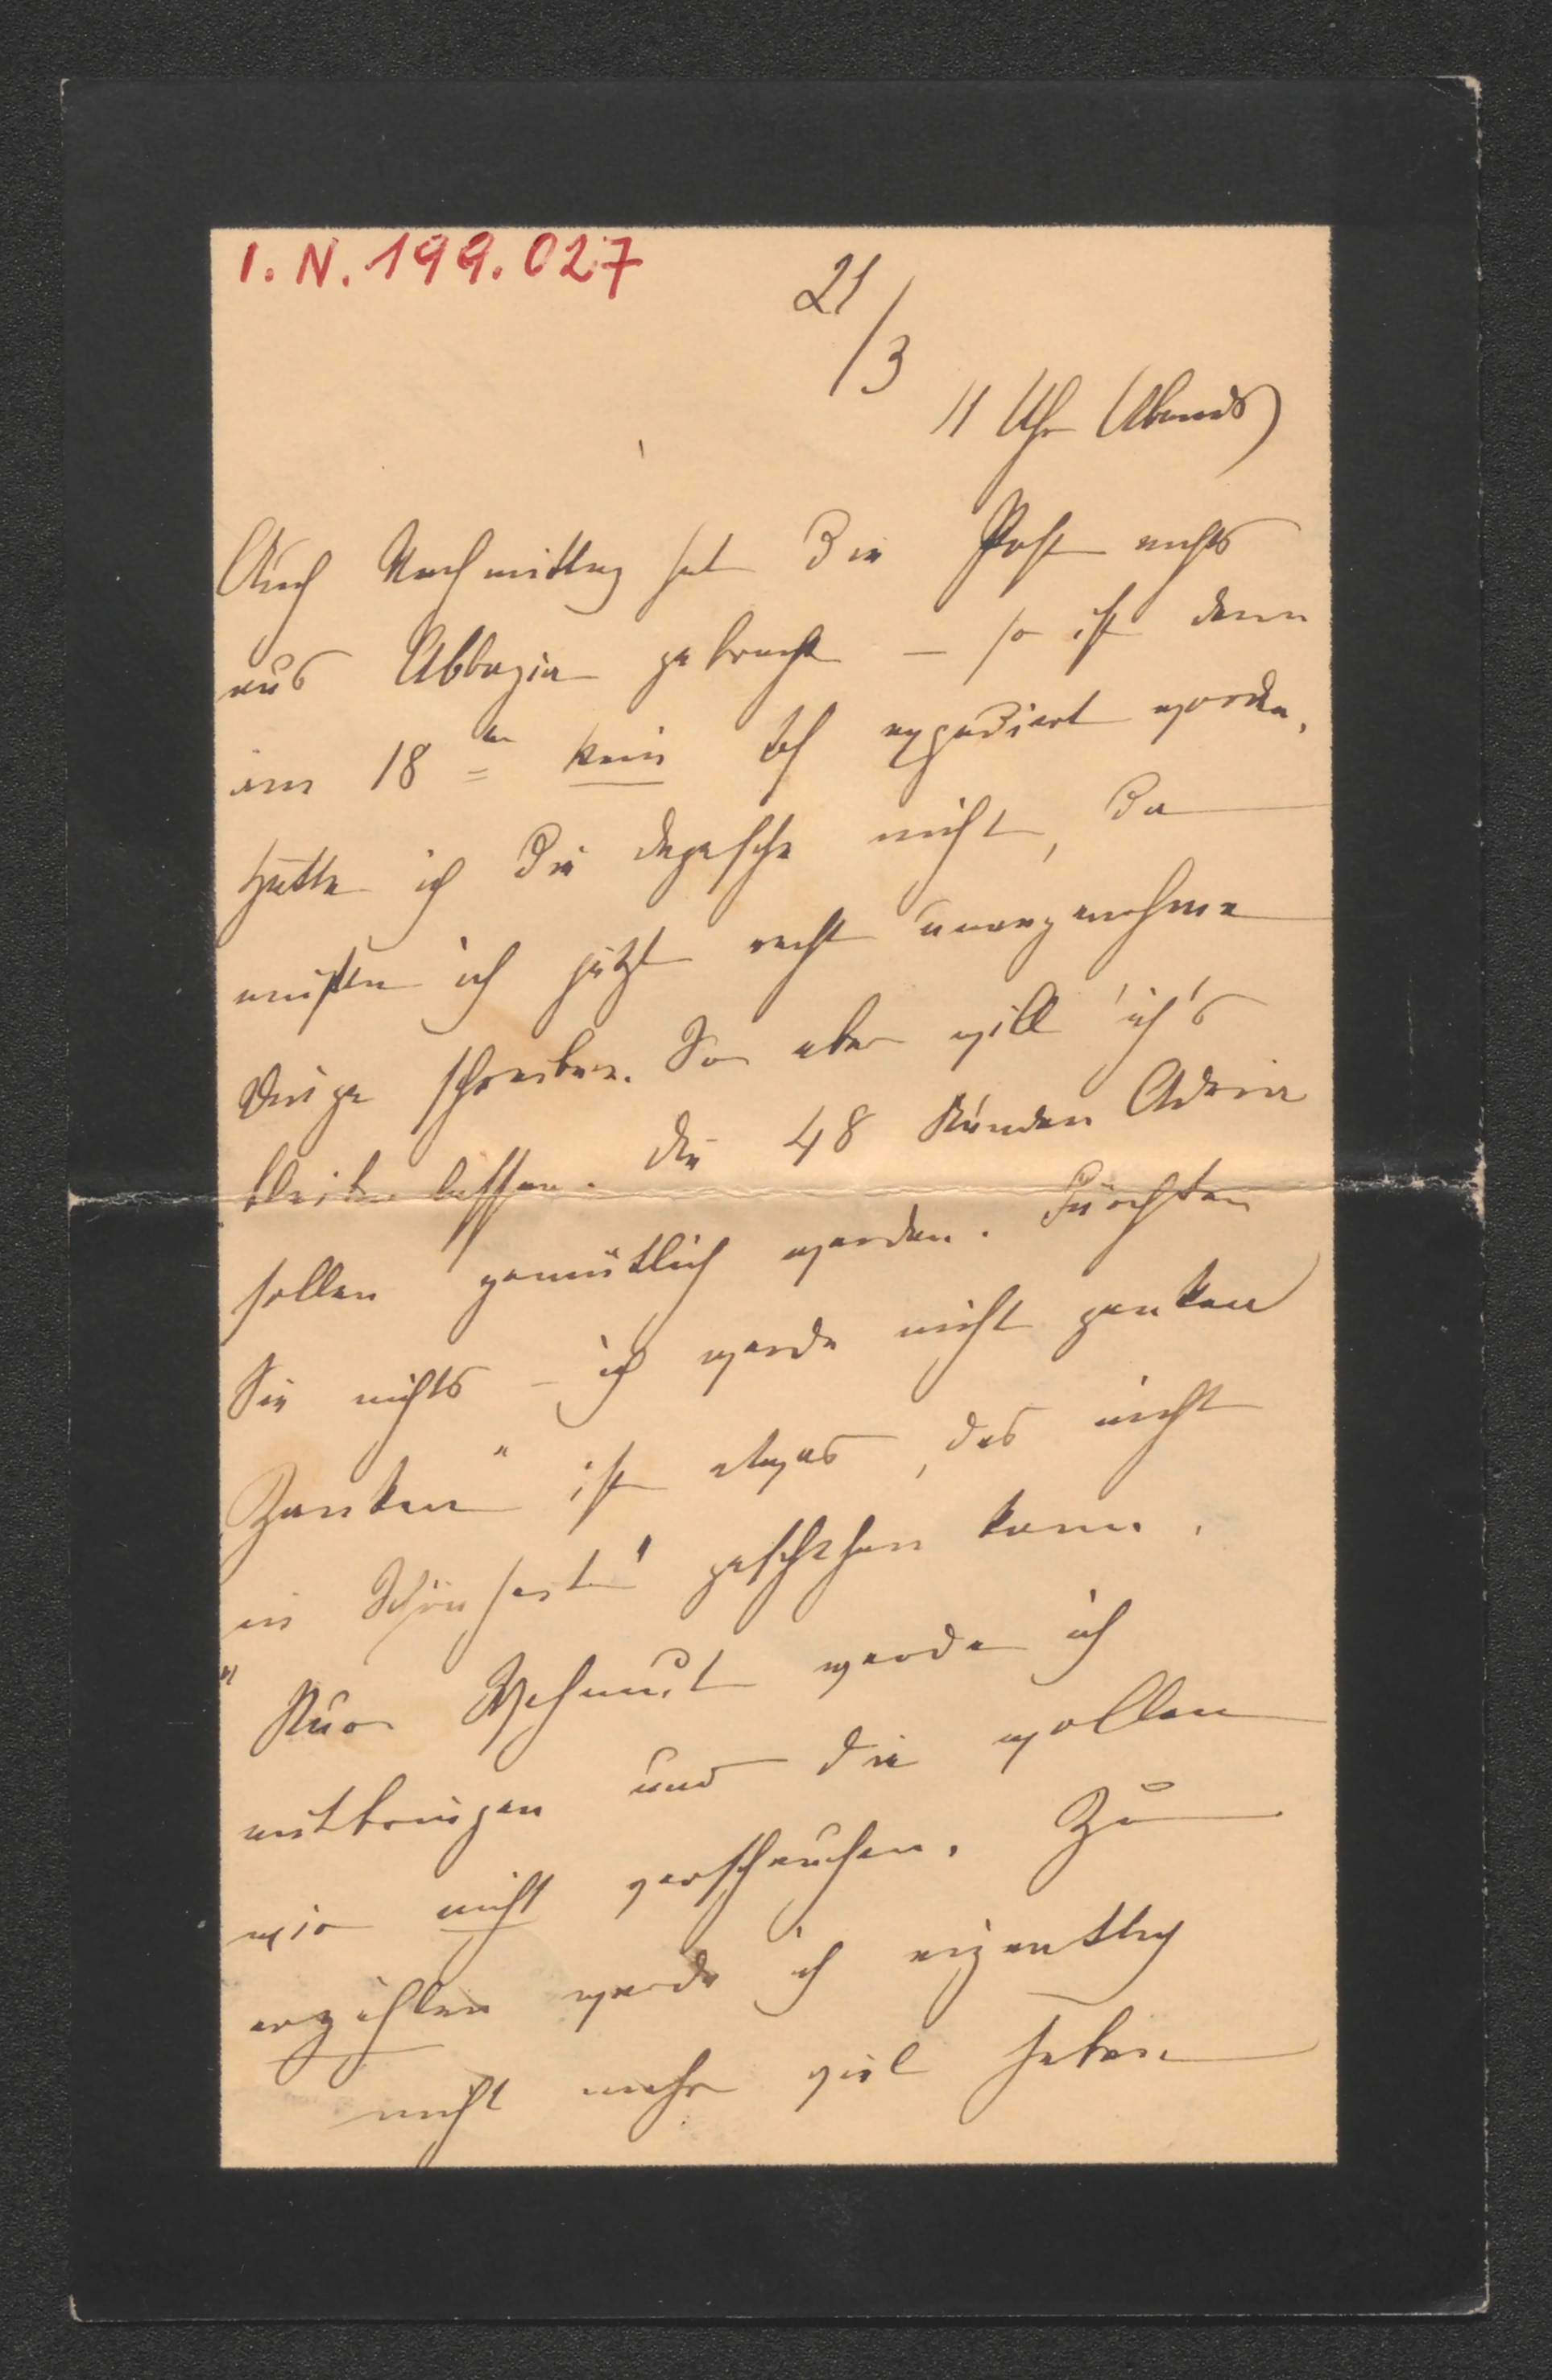 I. N. 199.027
21/3
11 Uhr Abends
Auch Nachmittag hat die Post nichts
aus Abbazia gebracht – so ist denn
am 18ten kein expediert worden.
Hätte ich die Depesche nicht, da
müßte ich jetzt recht unangenehme
Dinge schreiben. So aber will ich's
bleiben lassen. Die 48 Stunden Adria
sollen gemütlich werden. Fürchten
Sie nichts – ich werde nicht zanken
„Zanken" ist etwas, das nicht
in geschehen kann.
Nur Wehmut werde ich
mitbringen und die wollen
wir nicht verscheuchen. Zu
erzählen werde ich eigentlich
nicht mehr viel haben